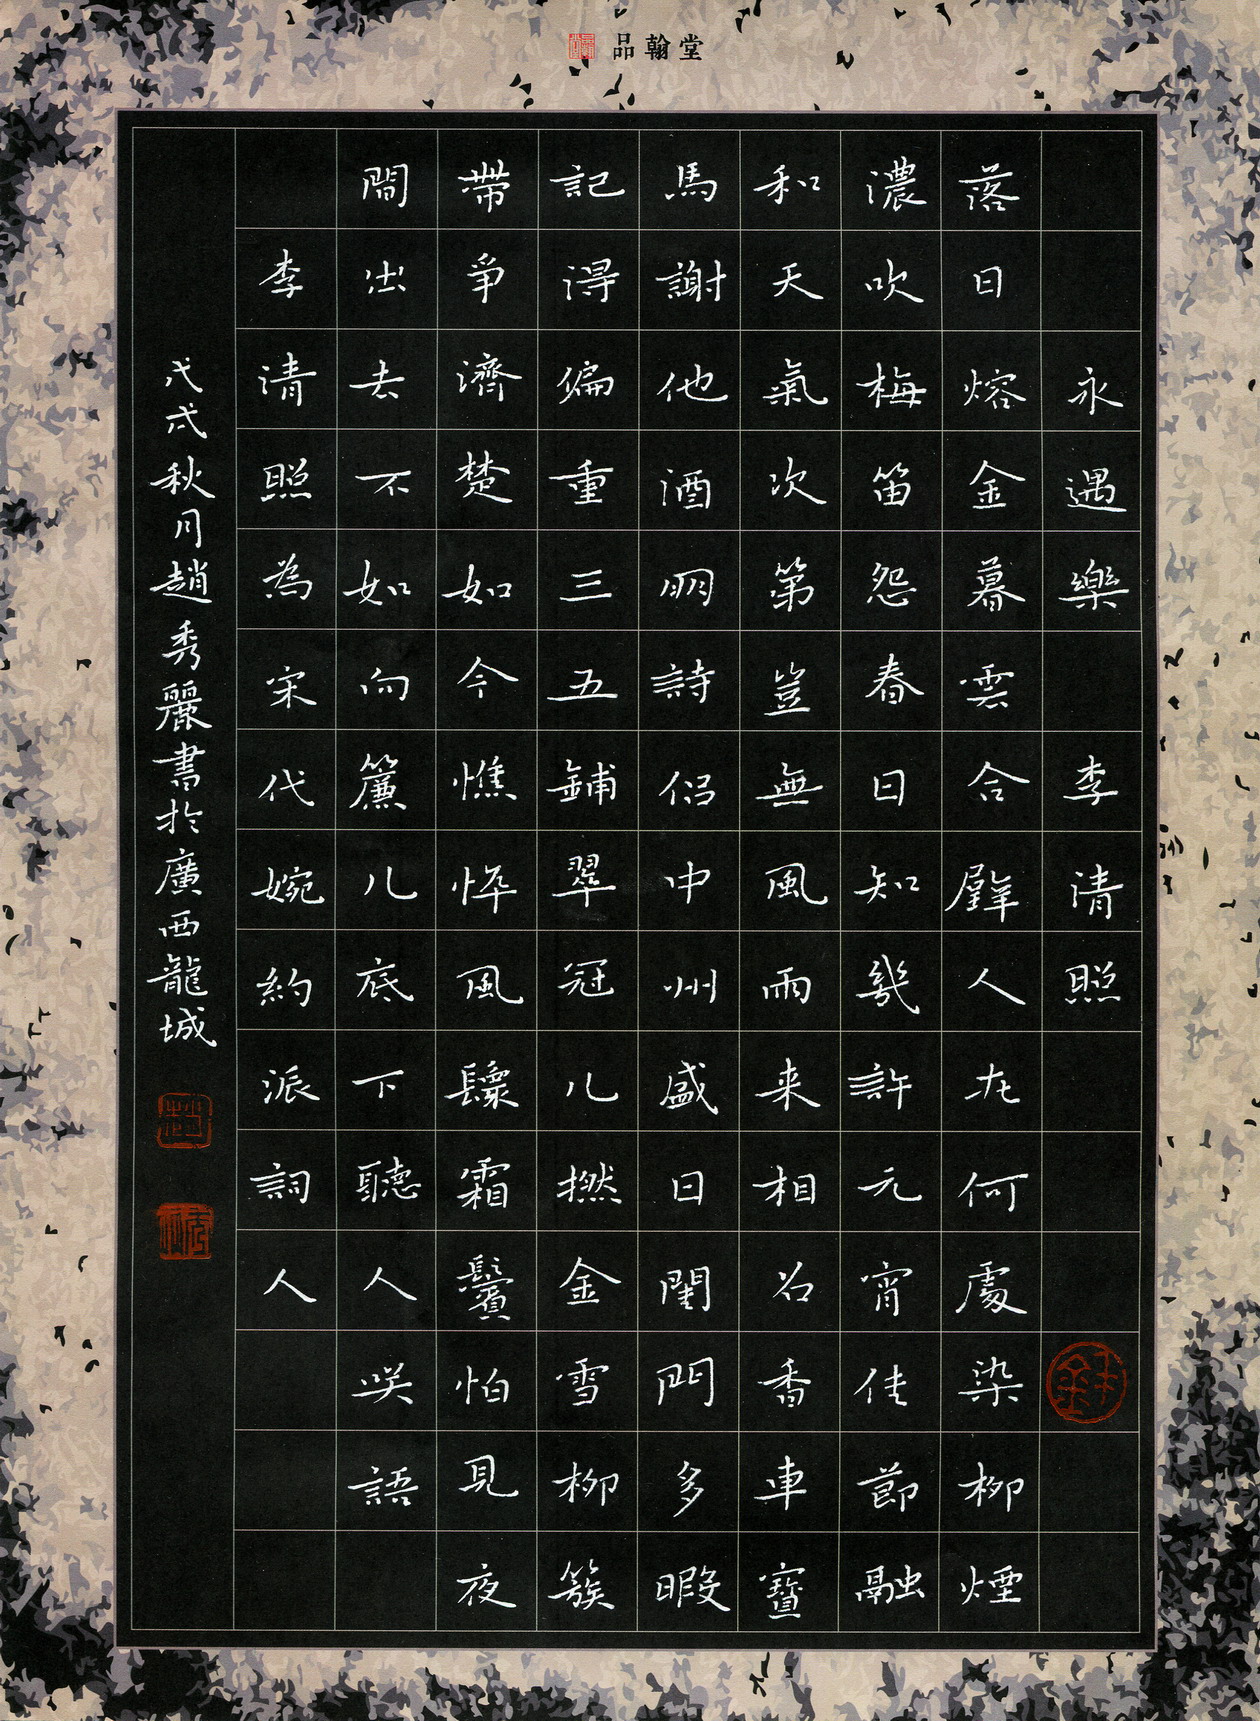 品翰堂
永遇樂 李清照
落日熔金暮雲合璧人在何處染柳煙
濃吹梅笛怨春日知幾許元宵佳節融
和天氣次第豈無風雨来相召香車寶
馬謝他酒朋詩侶中州盛日閨門多暇
記得偏重三五鋪翠冠儿撚金雪柳簇
帶爭濟楚如今憔悴風鬟霜鬢怕見夜
間出去不如向簾儿底下聽人笑語
李清照為宋代婉約派詞人
戊戌秋月趙秀麗書於廣西龍城